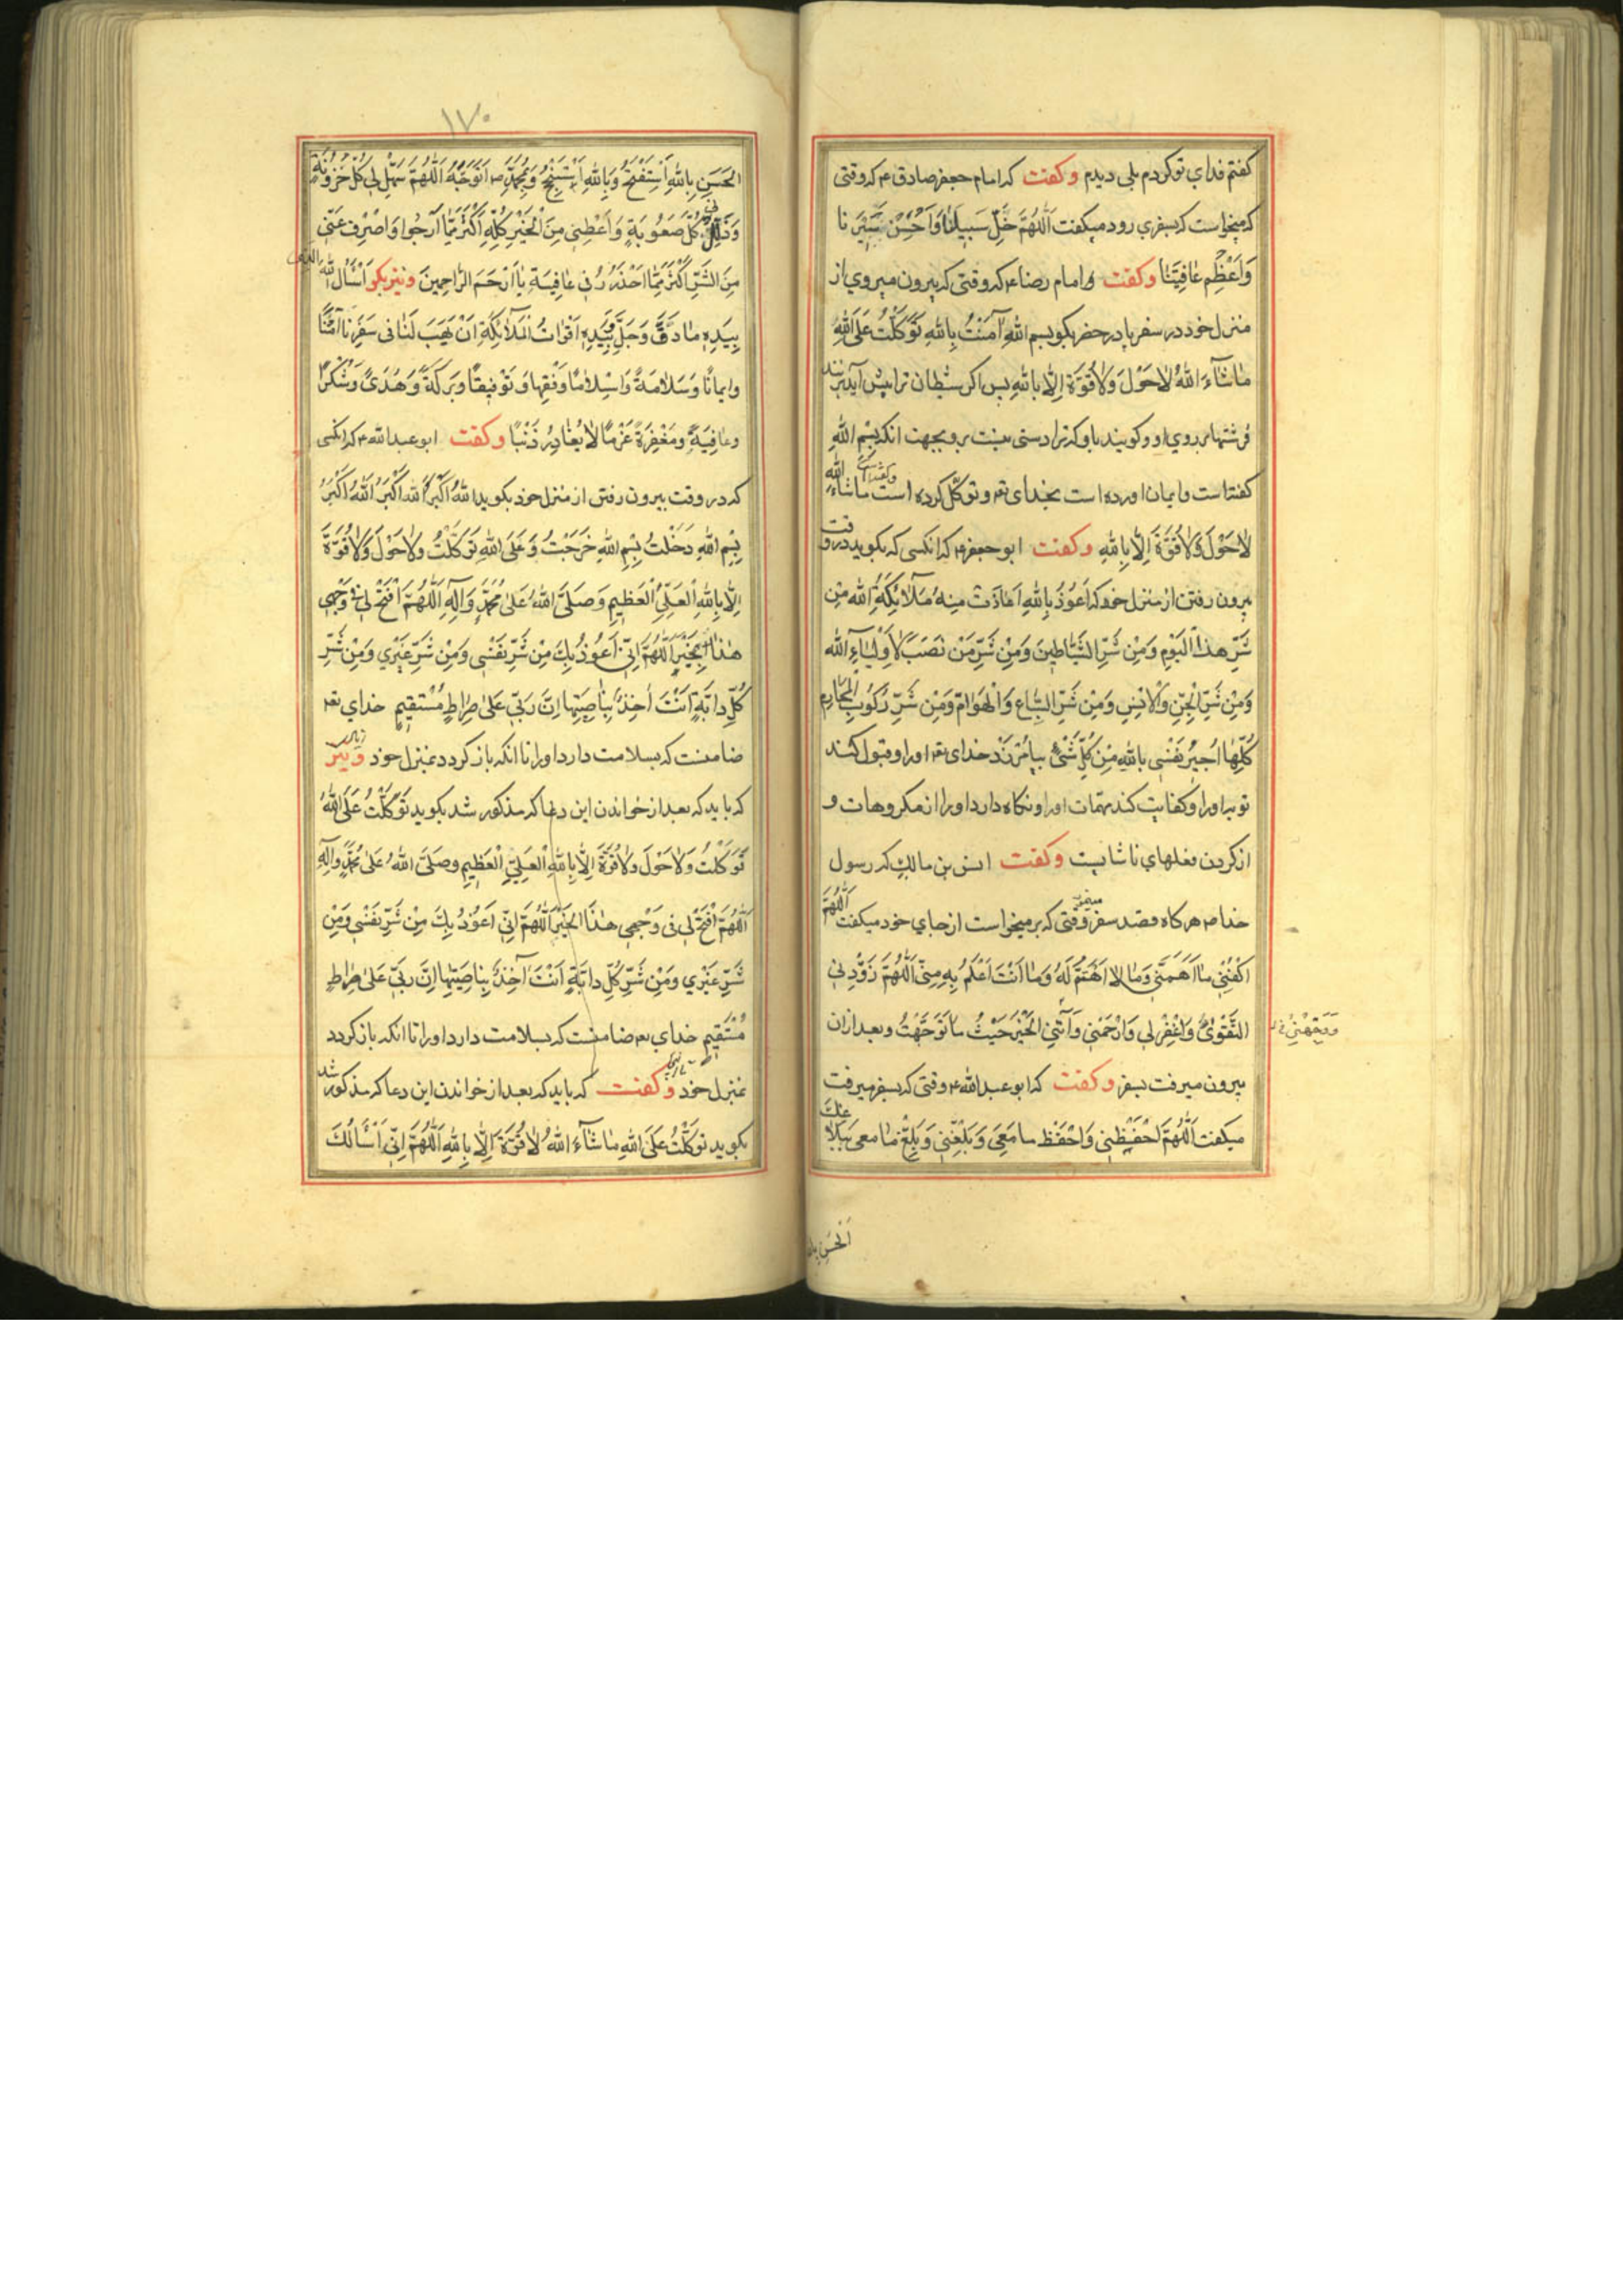 كفتم فداى تو كردم بلى ديدم وكفت كه امام جعفر صادق ع كه وقتى
كه ميخواست كه بسفرى رود ميكفت اَللّٰهُمَّ خَلِّ سَبِيلَنٰا وَاَحْسِنْ تَسْيِيرَنا
وَاَعْظِمْ عٰافِيَتَنٰا وكفت امام رضا ع كه وقتى كه بيرون ميروى از
منزل خود در سفر يا در حضر بكو بسم اللهِ آمَنْتُ بِاللهِ تَوَكَّلْتُ عَلَى اللهِ
مٰا شٰآءَ اللهُ لاٰ حَوْلَ وَلاٰ قُوَّةَ اِلاّٰ بِاللهِ پس اكر شيطان ترا پيش آيد بزنند
فرشتها بر روى او و كويند باو كه ترا دستى نيست بر او بجهت انكه بِسْمِ اللهِ
كفته است و ايمان اورده است بخداى تعه و توكّل كرده است وكفته است ماشاءَ اللهُ
لاٰ حَوْلَ وَلاٰ قُوَّةَ اِلاّٰ بِاللهِ وكفت ابو جعفر ع كه انكسى كه بكويد در وقت
بيرون رفتن از منزل خود كه اَعُوذُ بِاللهِ مِمّا عٰاذَتْ مِنهُ مَلاٰئِكَةُ اللهِ مِن
شَرِّ هذَا الْيَوْمِ وَمِنْ شَرِّ الشَّيٰاطِينَ وَمِنْ شَرِّ مَنْ نَصَبَ لِاَوْلِيٰآءِ الله
وَمِنْ شَرِّ الْجِنِّ وَالْاِنْسِ وَمِنْ شَرِّ السِّبٰاعِ وَالْهَوٰامِّ وَمِنْ شَرِّ رُكُوبِ الْمَحٰارِمِ
كُلِّهٰا اُجِيرُ نَفْسِى بِاللهِ مِنْ كُلِّ شَىْءٍ بيامرزد خداى تعه او را و قبول كند
توبه او را و كفايت كند مهمّات او را و نكاه دارد او را از مكروهات و
از كردن فعلهاى ناشايست وكفت انس بن مالك كه رسول
خدا ص هركاه قصد سفر ميفرمود وقتى كه بر ميخواست از جاى خود ميكفت اَللّٰهُمَّ
اكْفِنِى مٰا اَهَمَّنِى وَمٰا لاٰ اَهْتَمُّ لَهُ وَمٰا اَنْتَ اَعْلَمُ بِهِ مِنِّى اَللّٰهُمَّ زَوِّدْنِى
التَّقْوىٰ وَاغْفِرْ لِى وَارْحَمْنِى وَآتِنِى الْخَيْرَ حَيْثُ مٰا تَوَجَّهْتُ و بعد از ان
وَوَجِّهْنِى
بيرون ميرفت بسفر وكفت كه ابو عبد الله ع وقتى كه بسفر ميرفت
ميكفت اَللّٰهُمَّ احْفَظْنِى وَاحْفَظْ ما مَعِىَ وَبَلِّغْنِى وَبَلِّغْ مٰا معى بَلاٰغَكَ
اَلْحَسَنِ بِاللهِ
١٧٠
الْحَسَنِ بِاللهِ اَسْتَفْتِحُ وَبِاللهِ اَسْتَنْجِحُ وَبِمُحَمَّدٍ ص اَتَوَجَّهُ اَللّٰهُمَّ سَهِّلْ لِى كُلَّ حُزُونَةٍ
وَذَلِّلْ لى كُلَّ صَعُوبَةٍ وَاَعْطِنِى مِنَ الْخَيْرِ كُلِّهِ اَكْثَرَ مِمّٰا اَرْجُوا وَاصْرِفْ عَنِّى
مِنَ الشَّرِّ اَكْثَرَ مِمّٰا اَحْذَرُ فِى عٰافِيَةٍ يٰا اَرْحَمَ الرّٰاحِمِينَ ونيز بكو اَسْأَلُ اللهَ الَّذِى
بِيَدِهِ مٰا دَقَّ وَجَلَّ وَبِيَدِهِ اَقْوٰاتُ الْمَلاٰئِكَةِ اَنْ يَهَبَ لَنٰا فى سَفَرِنٰا اَمْنًا
وايمانًا وَسَلاٰمَةً وَاسْلاٰمًا وَفِقْهًا وَتَوْفِيقًا وَبَرَكَةً وَهُدًى وَشُكْرًا
وعٰافِيَةً ومَغْفِرَةً عَزْمًا لاٰ يُغٰادِرُ ذَنْبًا وكفت ابو عبد الله ع كه انكسى
كه در وقت بيرون رفتن از منزل خود بكويد اللهُ اَكْبَرُ اللهُ اَكْبَرُ اَللهُ اَكْبَرُ
بِسْمِ اللهِ دَخَلْتُ بِسْمِ اللهِ خَرَجْتُ وَعَلَى اللهِ تَوَكَّلْتُ وَلاٰ حَوْلَ وَلاٰ قُوَّةَ
اِلاّٰ بِاللهِ الْعَلِىِّ الْعَظِيمِ وَصَلَّى اللهُ عَلىٰ مُحَمَّدٍ وَآلِهِ اَللّٰهُمَّ افْتَحْ لِى فى وَجْهِى
هٰذٰا بِخَيْرٍ اَللّٰهُمَّ اِنِّى اَعُوذُ بِكَ مِنْ شَرِّ نَفْسِى وَمِنْ شَرِّ غَيْرِى وَمِنْ شَرِّ
كُلِّ دابَّةٍ اَنْتَ اٰخِذٌ بِنٰاصِيَتِهٰا اِنَّ رَبِّى عَلىٰ صِرٰاطٍ مُسْتَقِيمٍ خداى تعه
ضامنست كه بسلامت دارد او را تا انكه باز كردد بمنزل خود ونيز
كه بايد كه بعد از خواندن اين دعا كه مذكور شد بكويد تَوَكَّلْتُ عَلَى اللهِ
تَوَكَّلْتُ وَلاٰ حَوْلَ وَلاٰ قُوَّةَ اِلاّٰ بِاللهِ الْعَلِىِّ الْعَظِيمِ وصَلَّى اللهُ عَلىٰ مُحَمَّدٍ وَآلِهِ
اَللّٰهُمَّ افْتَحْ لِى فى وَجْهِى هٰذَا الْخَيْرَ اَللّٰهُمَّ اِنِّى اَعُوذُ بِكَ مِنْ شَرِّ نَفْسِى وَمِنْ
شَرِّ غَيْرِى وَمِنْ شَرِّ كُلِّ دابَّةٍ اَنْتَ آخِذٌ بِنٰاصِيَتِهٰا اِنَّ رَبِّى عَلىٰ صِرٰاطٍ
مُسْتَقِيمٍ خداى تعه ضامنست كه بسلامت دارد او را تا انكه باز كردد
بمنزل خود وكفت كه بايد كه بعد از خواندن اين دعا كه مذكور شد
بكويد تَوَكَّلْتُ عَلَى اللهِ مٰا شٰآءَ اللهُ لاٰ قُوَّةَ اِلاّٰ بِاللهِ اَللّٰهُمَّ اِنِّى اَسْأَلُكَ